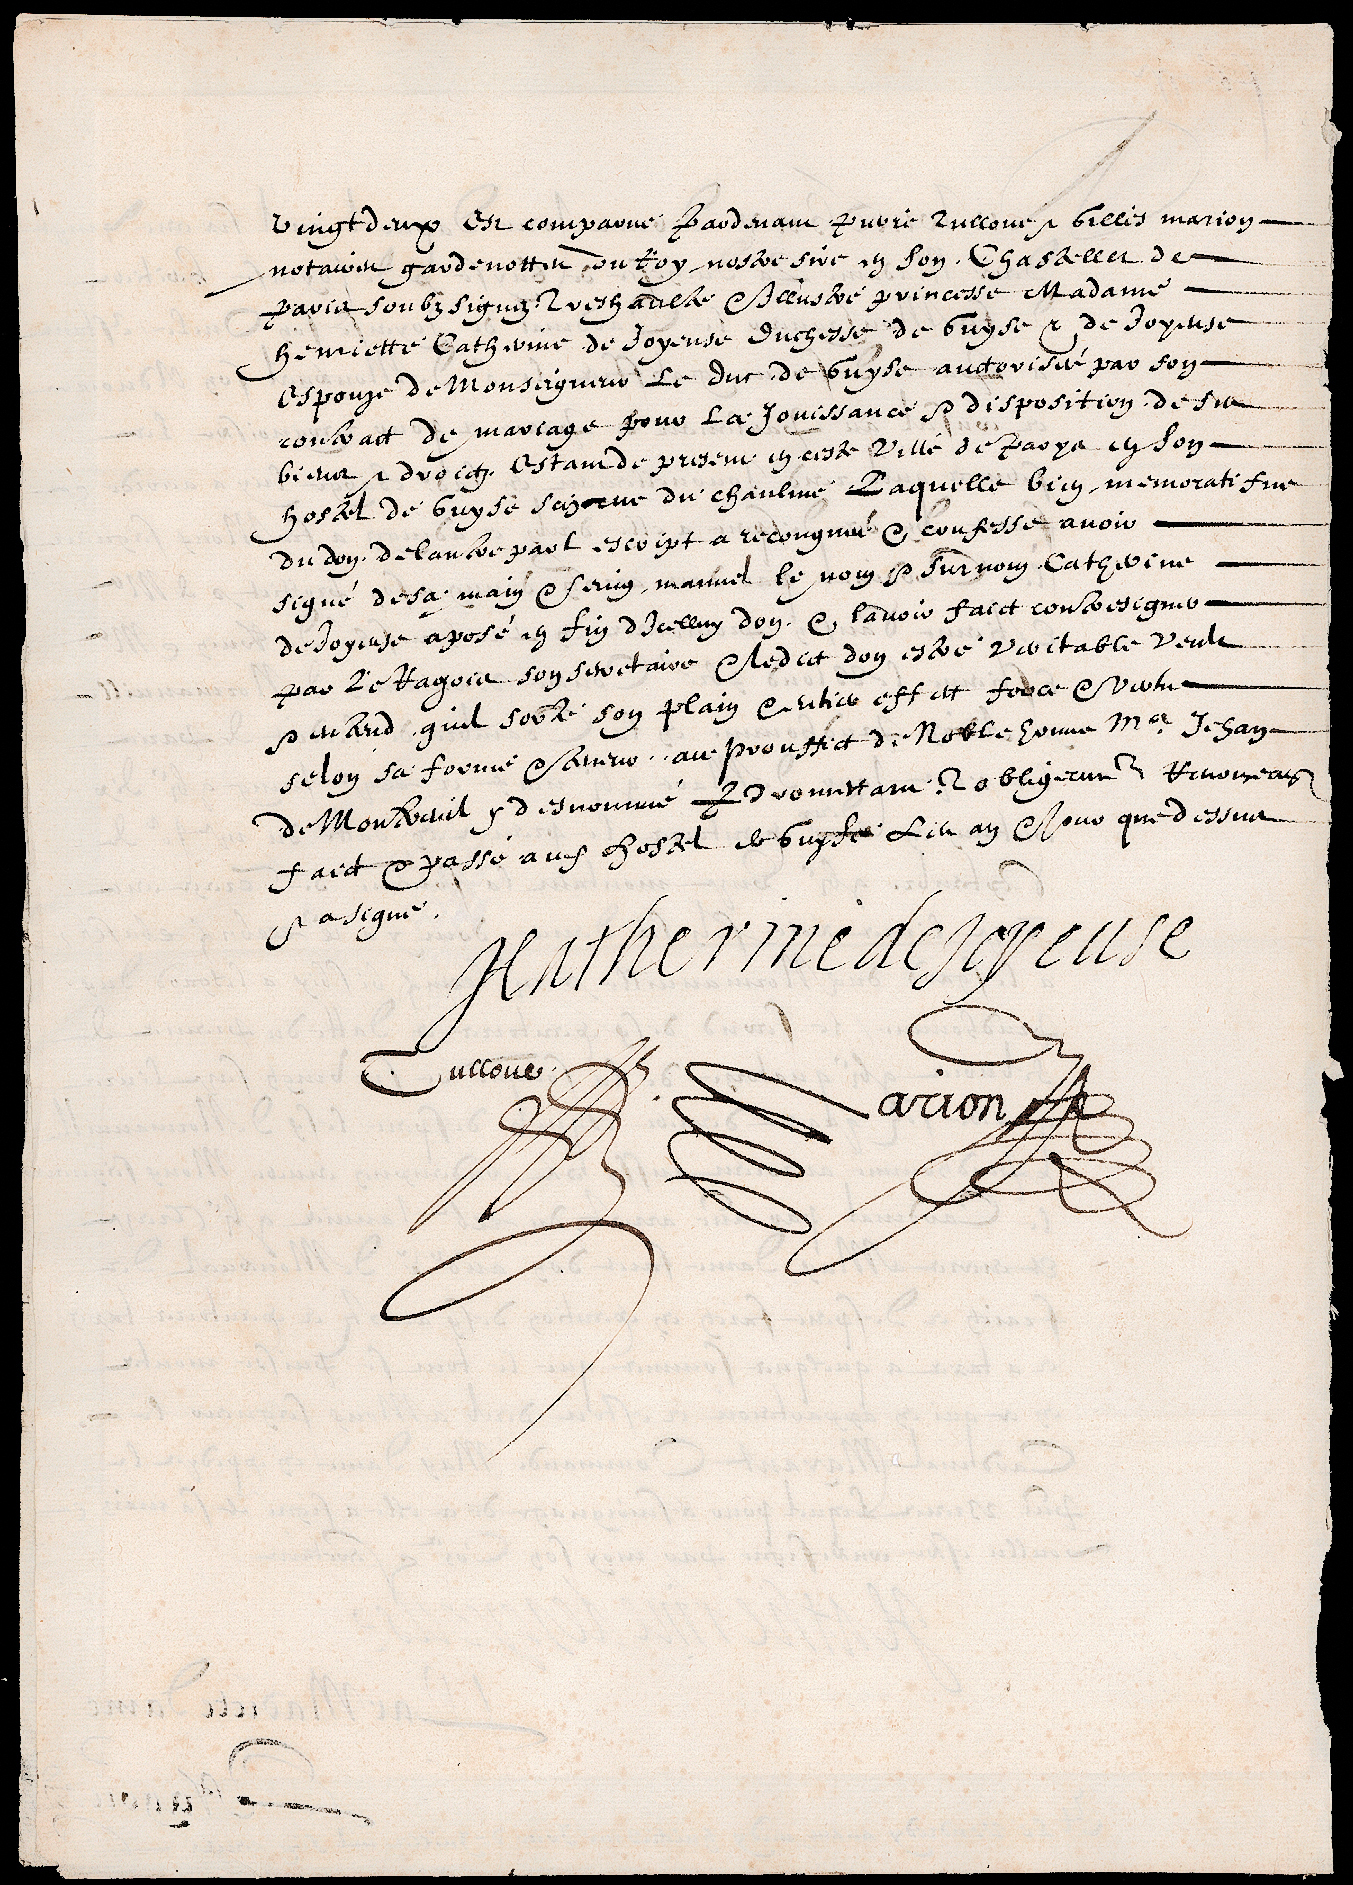 vingt deux Est comparue pardevant pierre Tulloue & Gilles marion
notaires gardenottes du Roy nostre sire en son Chastellet de
paris soubz signez Treshaulte & Illustre princesse Madame
henriette Catherine de Joyeuse duchesse de Guyse & de Joyeuse
Espouze de Monseigneur Le duc de Guyse auctorisée par son
contract de mariage pour La Jouissance & disposition de ses
biens & droictz Estant de present en ceste ville de Parys en son
hostel de Guyse size rue du chaulme Laquelle bien memoratifve
du don de lautre part escript a recongneu & confesse avoir
signé de sa main & seing manuel le nom & surnom Catherine
de Joyeuse aposé en fin dicelluy don & lavoir faict contresigner
par Le Ragois son secretaire & ledict don estre veritable veult
& entend quil sorte son plain & entier effect force & vertu
selon sa forme & teneur au prouffict de Noble homme Me Jehan
de Montreuil y desnommé Promettant & obligeant & Renonceant
faict & passé aud hostel de Guyse Les an & Jour que dessus
& a signé
Katherine de joyeuse
Tulloue Marion